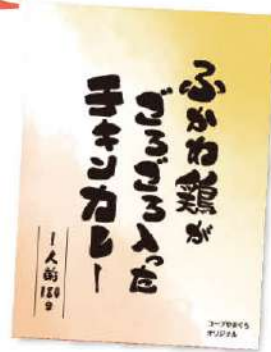 ふかね鶏が
ごろごろ入った
チキンカレー
1人前180g
コープやまぐち
オリジナル